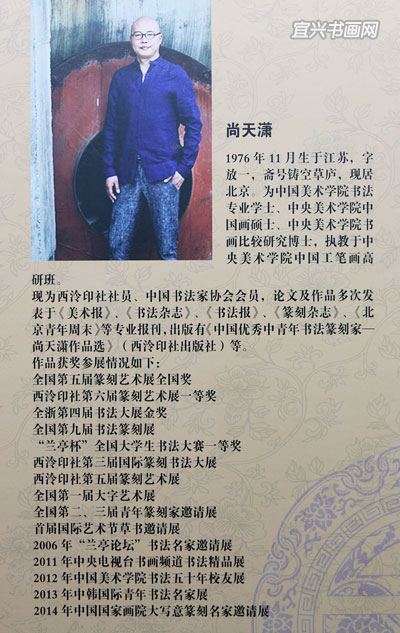 宜兴书画网
尚天潇
1976年11月生于江苏，字
放一，斋号铸空草庐，现居
北京。为中国美术学院书法
专业学士、中央美术学院中
国画硕士、中央美术学院书
画比较研究博士，执教于中
央美术学院中国工笔画高
研班。
现为西泠印社社员、中国书法家协会会员，论文及作品多次发
表于《美术报》、《书法杂志》、《书法报》、《篆刻杂志》、《北
京青年周末》等专业报刊，出版有《中国优秀中青年书法篆刻家—
尚天潇作品选》（西泠印社出版社）等。
作品获奖参展情况如下：
全国第五届篆刻艺术展全国奖
西泠印社第六届篆刻艺术展一等奖
全浙第四届书法大展金奖
全国第九届书法篆刻展
“兰亭杯”全国大学生书法大赛一等奖
西泠印社第三届国际篆刻书法大展
西泠印社第五届篆刻艺术展
全国第一届大字艺术展
全国第二、三届青年篆刻家邀请展
首届国际艺术节草书邀请展
2006年“兰亭论坛”书法名家邀请展
2011年中央电视台书画频道书法精品展
2012年中国美术学院书法五十年校友展
2013年中韩国际青年书法名家展
2014年中国国家画院大写意篆刻名家邀请展